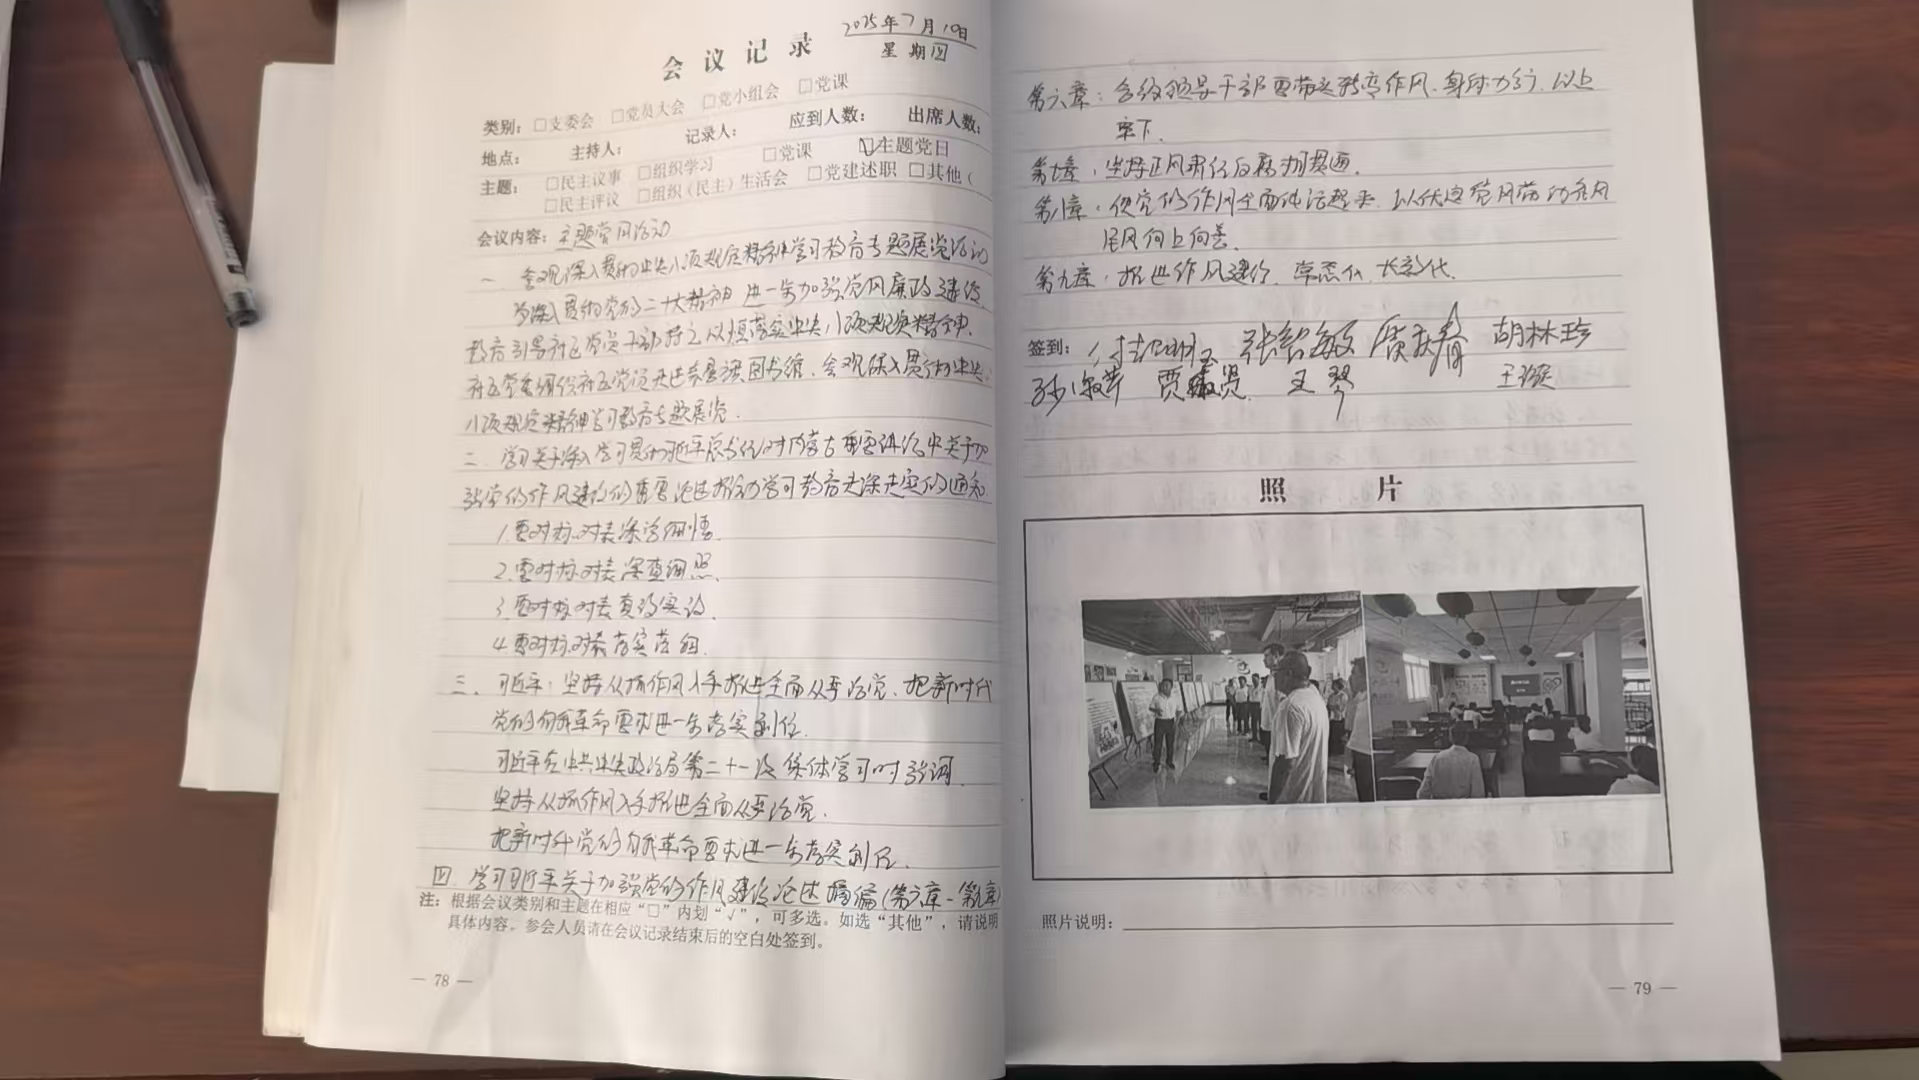 2025年7月10日
会议记录
星期四
类别：□支委会 □党员大会 □党小组会 □党课
地点： 主持人： 记录人： 应到人数： 出席人数：
主题：□民主议事 □组织学习 □党课 ☑主题党日
□民主评议 □组织（民主）生活会 □党建述职 □其他（
会议内容：主题党日活动
一 参观深入贯彻中央八项规定精神学习教育专题展览活动
为深入贯彻党的二十大精神 进一步加强党风廉政建设，
教育引导社区党员干部持之以恒落实中央八项规定精神，
社区党委组织社区党员走进 图书馆，参观深入贯彻中央
八项规定精神学习教育专题展览．
二．学习关于深入学习贯彻习近平总书记对内蒙古重要讲话中关于加
强党的作风建设的重要论述推动学习教育走深走实的通知
1.要对标对表深学细悟．
2.要对标对表深查细照．
3.要对标对表真改实改．
4.要对标对表落实落细．
三．习近平：坚持从抓作风入手推进全面从严治党．把新时代
党的自我革命要求进一步落实到位．
习近平在中共中央政治局第二十一次集体学习时强调
坚持从抓作风入手推进全面从严治党．
把新时代党的自我革命要求进一步落实到位．
四．学习习近平关于加强党的作风建设论述摘编(第六章-第九章)
注：根据会议类别和主题在相应“□”内划“√”，可多选。如选“其他”，请说明
具体内容。参会人员请在会议记录结束后的空白处签到。
— 78 —
第六章：各级领导干部要带头转变作风．身体力行．以上
率下．
第七章：坚持正风肃纪反腐相贯通．
第八章：使党的作风全面纯洁起来．以优良党风带动社风
民风向上向善．
第九章：推进作风建设．常态化 长效化．
签到： 张 敏 春 胡林珍
孙淑萍 贾 贤 王琴 王
照片
照片说明：
— 79 —